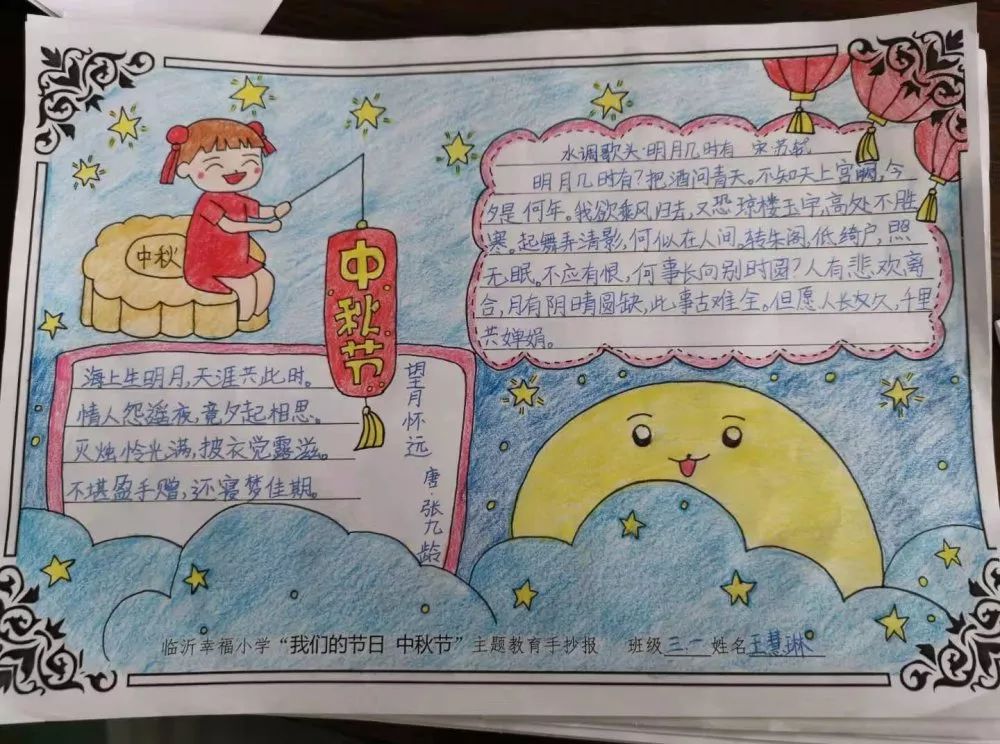 中秋
中秋节
水调歌头·明月几时有 宋苏轼
明月几时有?把酒问青天。不知天上宫阙,今
夕是何年。我欲乘风归去,又恐琼楼玉宇,高处不胜
寒。起舞弄清影,何似在人间。转朱阁,低绮户,照
无眠。不应有恨,何事长向别时圆?人有悲欢离
合,月有阴晴圆缺,此事古难全。但愿人长久,千里
共婵娟。
望月怀远
唐·张九龄
海上生明月,天涯共此时。
情人怨遥夜,竟夕起相思。
灭烛怜光满,披衣觉露滋。
不堪盈手赠,还寝梦佳期。
临沂幸福小学“我们的节日 中秋节”主题教育手抄报 班级三.一 姓名王慧琳